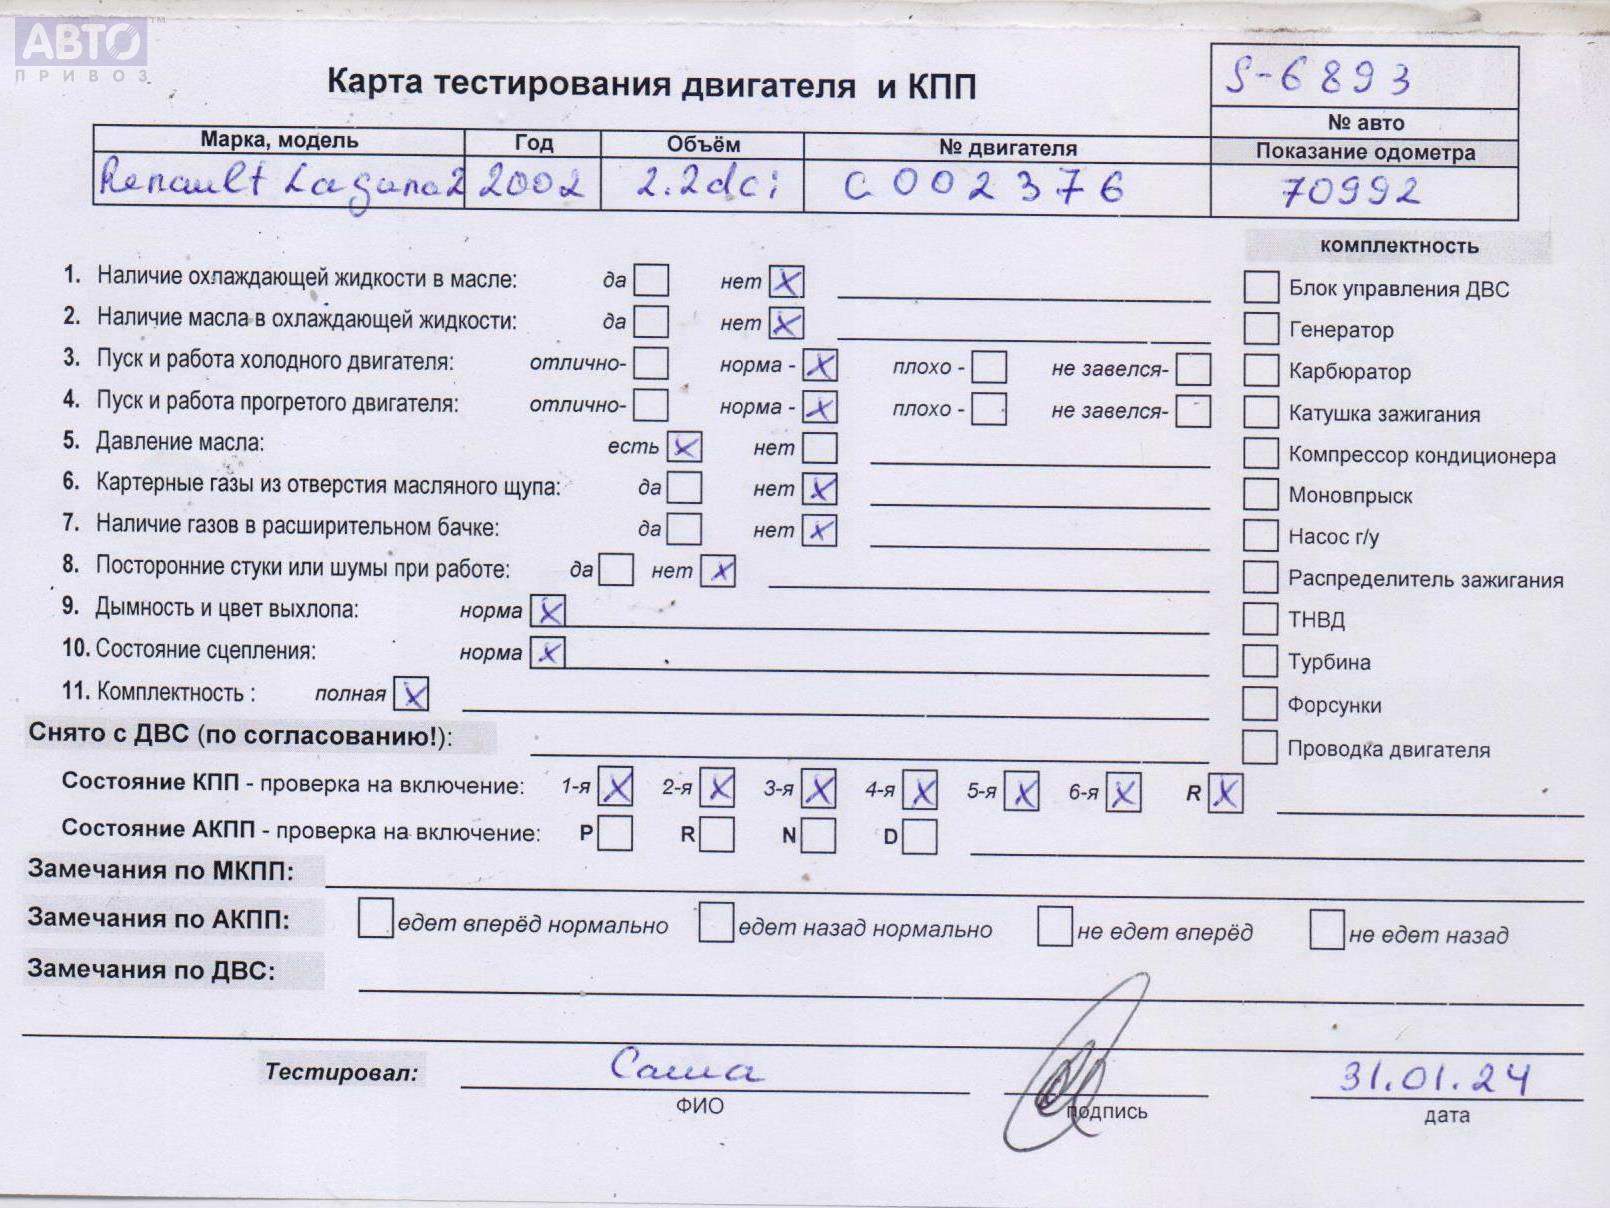 АВТО
ПРИВОЗ
S-6893
Карта тестирования двигателя и КПП
№ авто
Марка, модель Год Объём № двигателя Показание одометра
Renault Laguna2 2002 2.2dci C002376 70992
комплектность
1. Наличие охлаждающей жидкости в масле: да нет X
Блок управления ДВС
2. Наличие масла в охлаждающей жидкости: да нет X
Генератор
3. Пуск и работа холодного двигателя: отлично- норма - X плохо - не завелся-
Карбюратор
4. Пуск и работа прогретого двигателя: отлично- норма - X плохо - не завелся-
Катушка зажигания
5. Давление масла: есть X нет
Компрессор кондиционера
6. Картерные газы из отверстия масляного щупа: да нет X
Моновпрыск
7. Наличие газов в расширительном бачке: да нет X
Насос г/у
8. Посторонние стуки или шумы при работе: да нет X
Распределитель зажигания
9. Дымность и цвет выхлопа: норма X
ТНВД
10. Состояние сцепления: норма X
Турбина
11. Комплектность : полная X
Форсунки
Снято с ДВС (по согласованию!):
Проводка двигателя
Состояние КПП - проверка на включение: 1-я X 2-я X 3-я X 4-я X 5-я X 6-я X R X
Состояние АКПП - проверка на включение: P R N D
Замечания по МКПП:
Замечания по АКПП: едет вперёд нормально едет назад нормально не едет вперёд не едет назад
Замечания по ДВС:
Тестировал: Саша 31.01.24
ФИО подпись дата